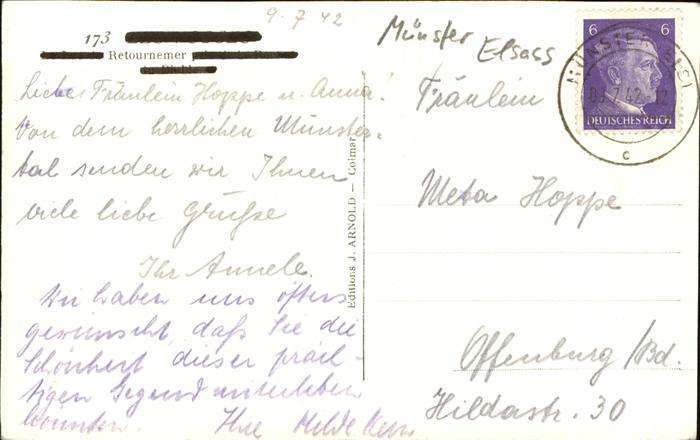 9.7.42
Münster Elsass
173
Retournemer
6 6
MÜNSTER (ELS)
7.42.12
DEUTSCHES REICH
c
Liebes Fräulein Hoppe u. Anna!
Von dem herrlichen Münster-
tal senden wir Ihnen
viele liebe Grüße
Ihr Annele.
Wir haben uns öfters
gewünscht, daß Sie die
Schönheit dieser präch-
tigen Gegend miterleben
könnten. Ihre Hilde
Editions J. ARNOLD — Colmar
Fräulein
Meta Hoppe
Offenburg/Bd.
Hildastr. 30